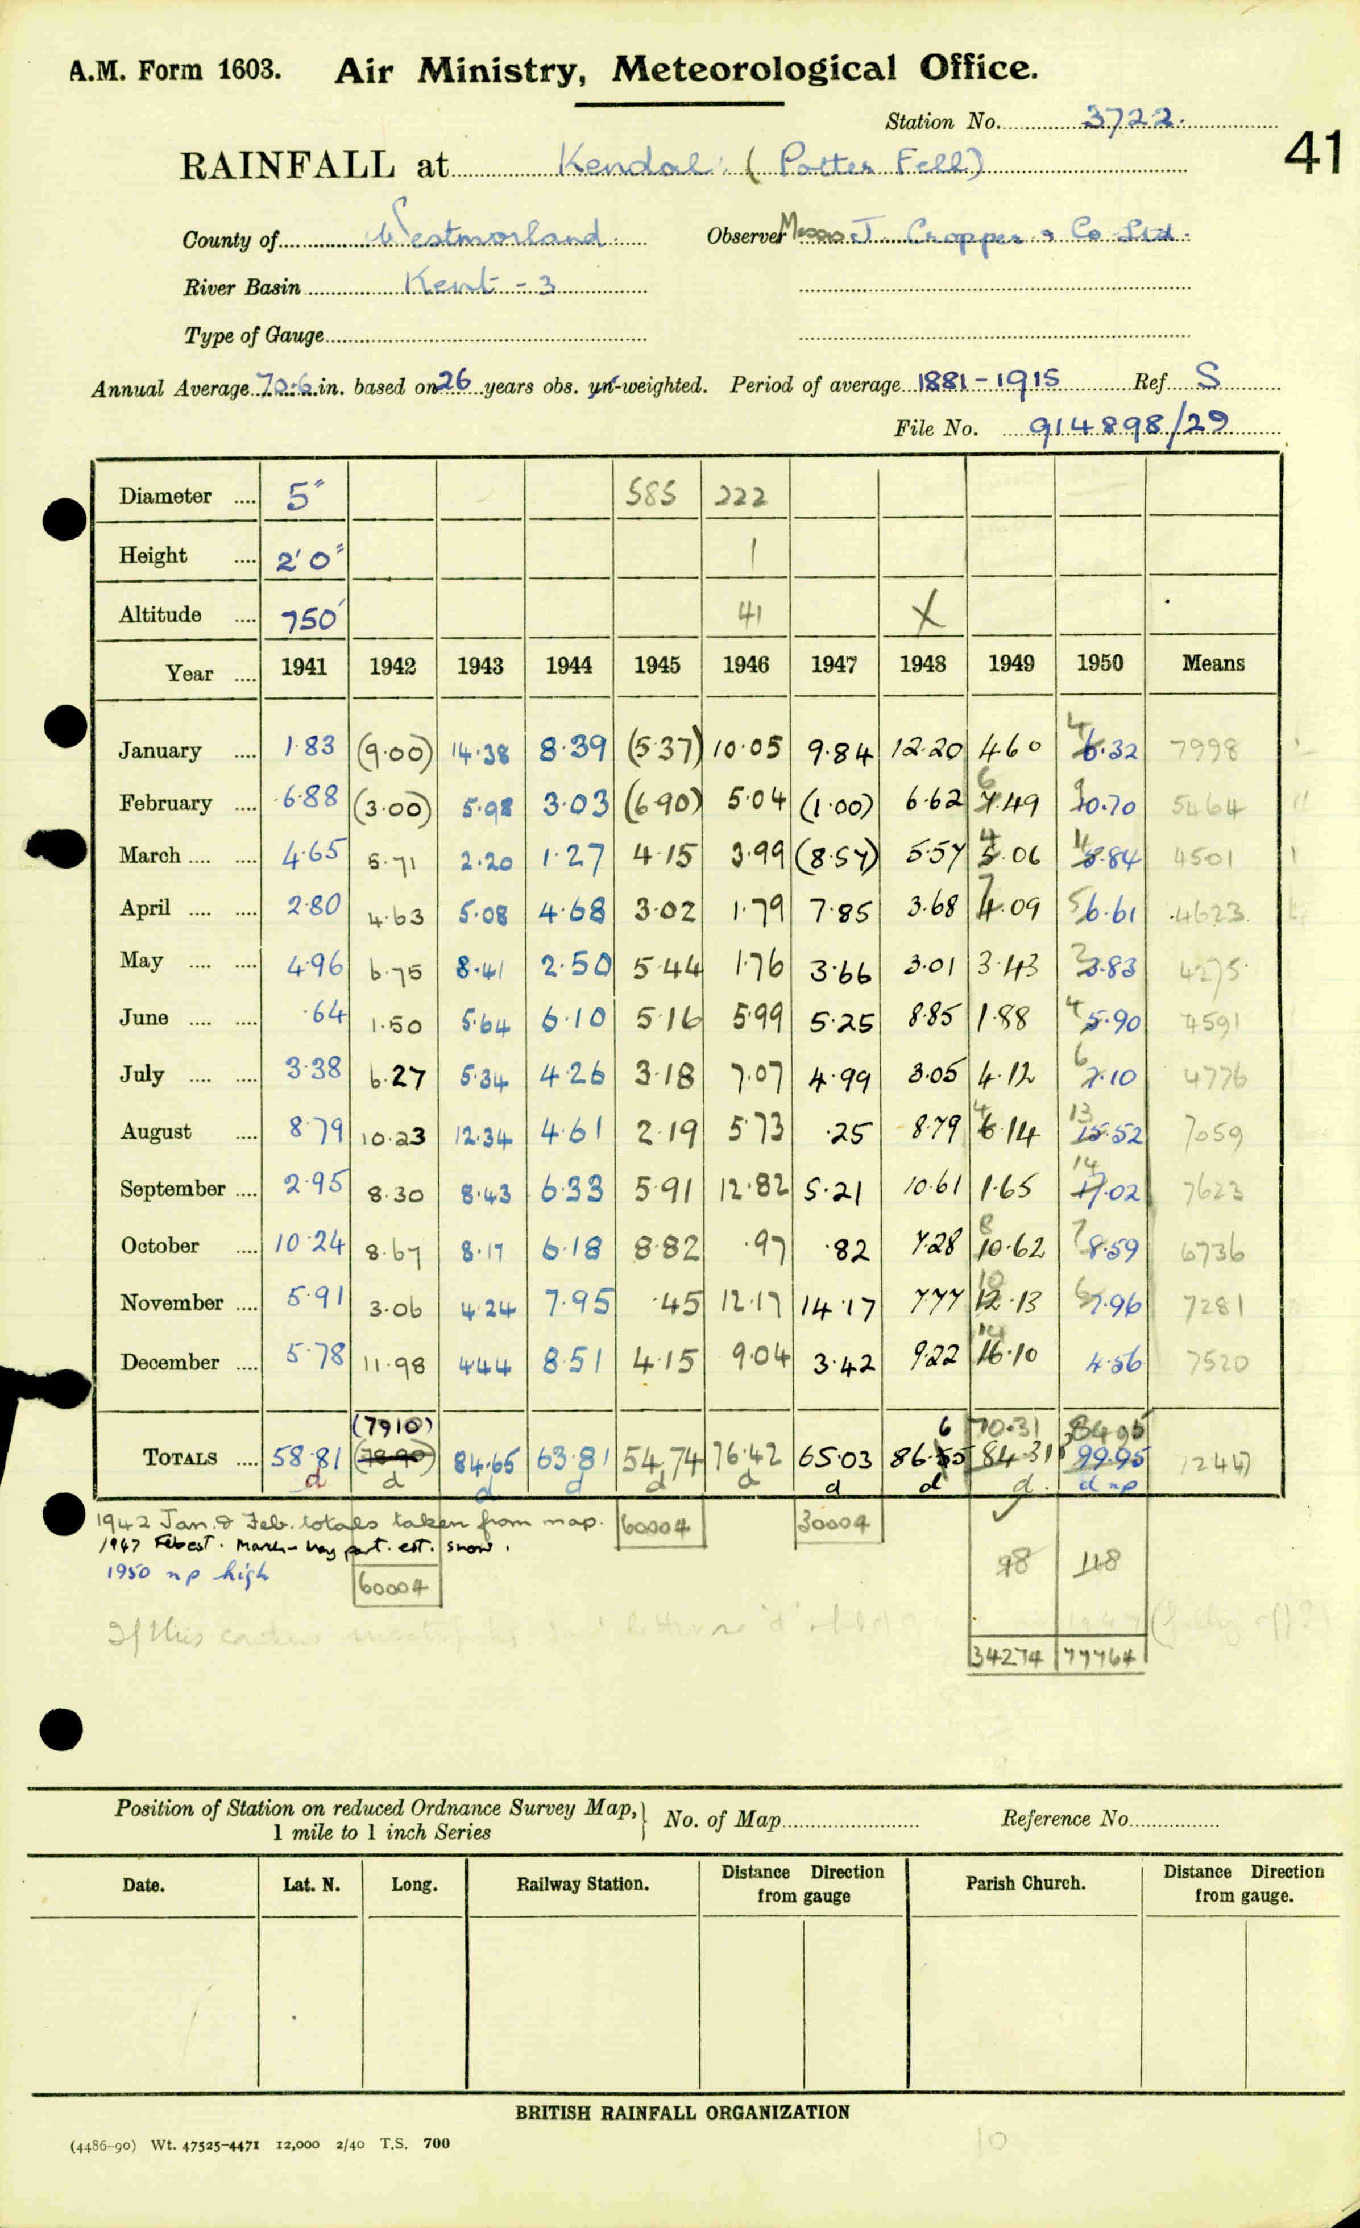 A.M. Form 1603. Air Ministry, Meteorological Office.
Station No. 3722.
41
RAINFALL at Kendal (Potter Fell)
County of Westmorland Observer Messrs J. Cropper & Co Ltd.
River Basin Kent - 3
Type of Gauge
Annual Average 70.6 in. based on 26 years obs. un-weighted. Period of average 1881-1915 Ref. S
File No. 914898/29
Diameter .... 5" 585 222
Height .... 2' 0" 1
Altitude .... 750' 41 X
Year .... 1941 1942 1943 1944 1945 1946 1947 1948 1949 1950 Means
January .... 1.83 (9.00) 14.38 8.39 (5.37) 10.05 9.84 12.20 4.60 4 6.32 7998
February .... 6.88 (3.00) 5.98 3.03 (6.90) 5.04 (1.00) 6.62 6 7.49 9 10.70 5464
March .... .... 4.65 5.71 2.20 1.27 4.15 3.99 (8.57) 5.57 4 5.06 .84 4501
April .... .... 2.80 4.63 5.08 4.68 3.02 1.79 7.85 3.68 4.09 5 6.61 4623
May .... .... 4.96 6.75 8.41 2.50 5.44 1.76 3.66 3.01 3.43 3.83 4275
June .... .... .64 1.50 5.64 6.10 5.16 5.99 5.25 8.85 1.88 4 5.90 4591
July .... .... 3.38 6.27 5.34 4.26 3.18 7.07 4.99 3.05 4.12 6 7.10 4776
August .... 8.79 10.23 12.34 4.61 2.19 5.73 .25 8.79 4 6.14 13 15.52 7059
September .... 2.95 8.30 8.43 6.33 5.91 12.82 5.21 10.61 1.65 14 17.02 7623
October .... 10.24 8.67 8.17 6.18 8.82 .97 .82 7.28 8 10.62 7 8.59 6736
November .... 5.91 3.06 4.24 7.95 .45 12.17 14.17 7.77 10 12.13 6 7.96 7281
December .... 5.78 11.98 4.44 8.51 4.15 9.04 3.42 9.22 14 16.10 4.56 7520
(7910) 6 70.31 84.95
TOTALS .... 58.81 (78.90) 84.65 63.81 54.74 76.42 65.03 86.55 84.31 99.95 7244
d d d d d d d d d d np
1942 Jan. & Feb. totals taken from map. 60004 30004
1947 Feb est. March - may part. est. snow.
1950 np high 60004 98 118
If this
34274 77764
Position of Station on reduced Ordnance Survey Map, No. of Map Reference No.
1 mile to 1 inch Series
Date. Lat. N. Long. Railway Station. Distance Direction from gauge Parish Church. Distance Direction from gauge.
BRITISH RAINFALL ORGANIZATION
(4486-90) Wt. 47525-4471 12,000 2/40 T.S. 700
10